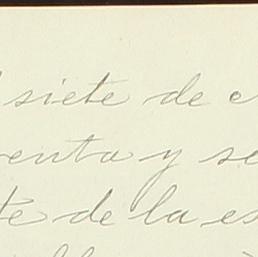 siete de
enta y se
te de la es